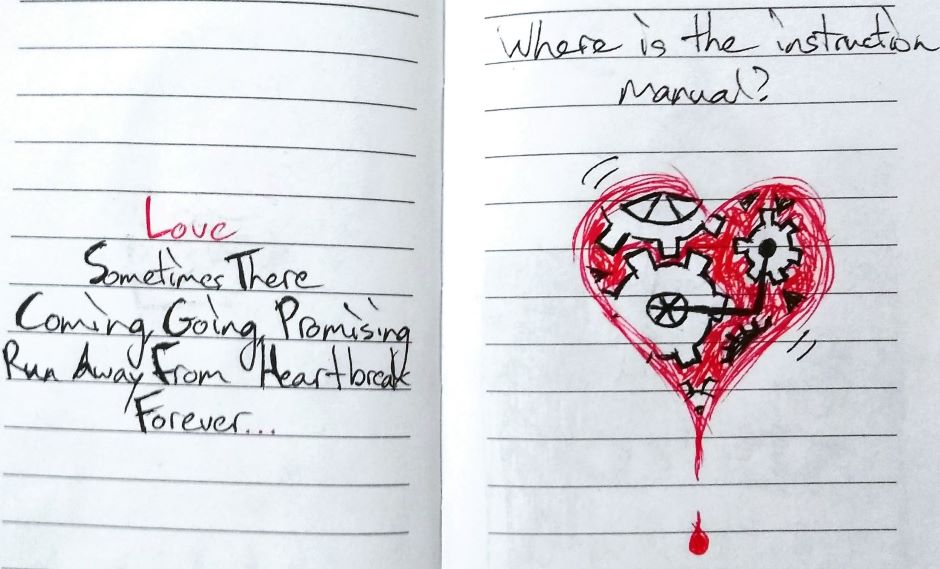 Love
Sometimes There
Coming, Going, Promising
Run Away From Heartbreak
Forever...
Where is the instruction
manual?